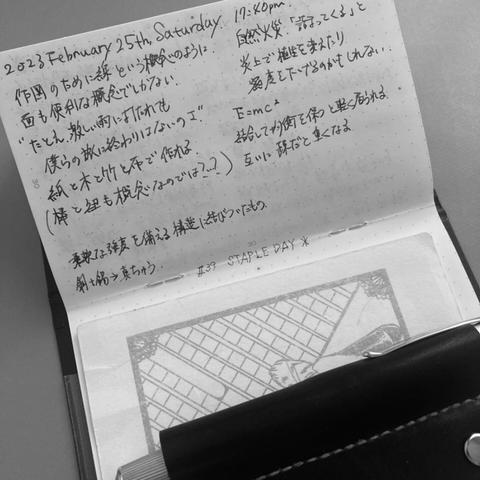 2023 February 25th, Saturday. 17:40pm.
作図のために線という概念のように
面も便利な概念でしかない.
"たとえ、激しい雨に打たれても
僕らの旅に終わりはないのさ"
紙と木と竹と布で作れる.
(横と紐も概念なのでは?..?)
柔軟な強度を備える構造に結びついたもの.
銅+錫→真ちゅう
自然火災「詰まってくる」と
炎上で植生を変えたり
密度を下げるのかもしれない.
E=mc²
結合して均衡を保つと軽く居られる.
互いに疎だと重くなる
#39 STAPLE DAY *